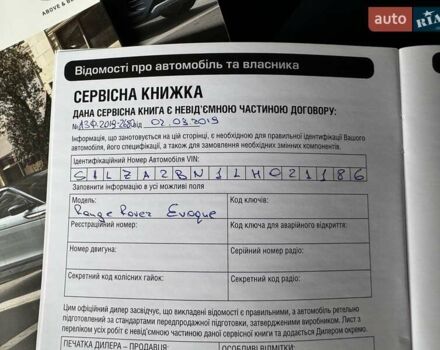 ABOVE & BE
auto RIA
Відомості про автомобіль та власника
СЕРВІСНА КНИЖКА
ДАНА СЕРВІСНА КНИГА Є НЕВІД'ЄМНОЮ ЧАСТИНОЮ ДОГОВОРУ:
від 02.03.2019
Інформація, що занотовується на цій сторінці, є необхідною для правильної ідентифікації Вашого
автомобіля, його специфікації, а також для замовлення необхідних змінних компонентів.
Ідентифікаційний Номер Автомобіля VIN:
SALZA2BN1LH021186
Заповнити інформацію в усі можливі поля
Модель:
Range Rover Evoque
Код ключів:
Реєстраційний номер:
Код ключа для аварійного відкриття:
Номер двигуна:
Серійний номер радіо:
Секретний код колісних гайок:
Секретний код радіо:
Цим офіційний дилер засвідчує, що викладені відомості є правильними, а автомобіль ретельно
підготовлений за стандартами передпродажної підготовки, затвердженими виробником. Лист з
переліком усіх робіт є невід'ємною частиною даної сервісної книги та додається Дилером окремо.
ПЕЧАТКА ДИЛЕРА – ПРОДАВЦЯ:
ОСОБЛИВІ ВІДМІТКИ: